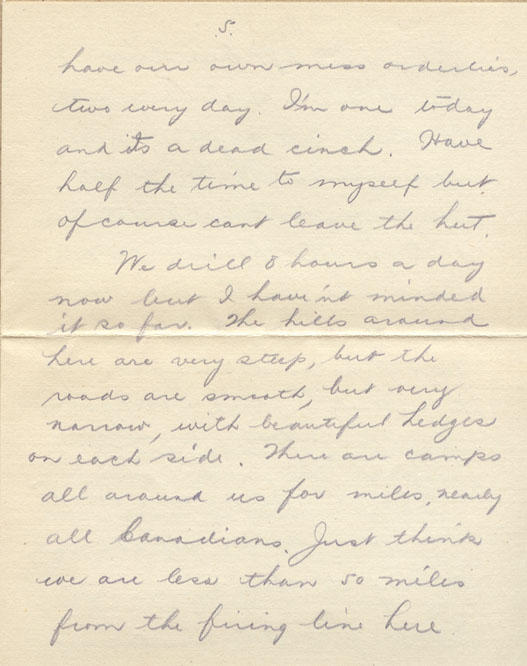 5.
have our own mess orderlies,
two every day. I'm one today
and its a dead cinch. Have
half the time to myself but
of course cant leave the hut.
We drill 8 hours a day
now but I have'nt minded
it so far. The hills around
here are very steep, but the
roads are smooth, but very
narrow, with beautiful hedges
on each side. There are camps
all around us for miles, nearly
all Canadians. Just think
we are less than 50 miles
from the firing line here.